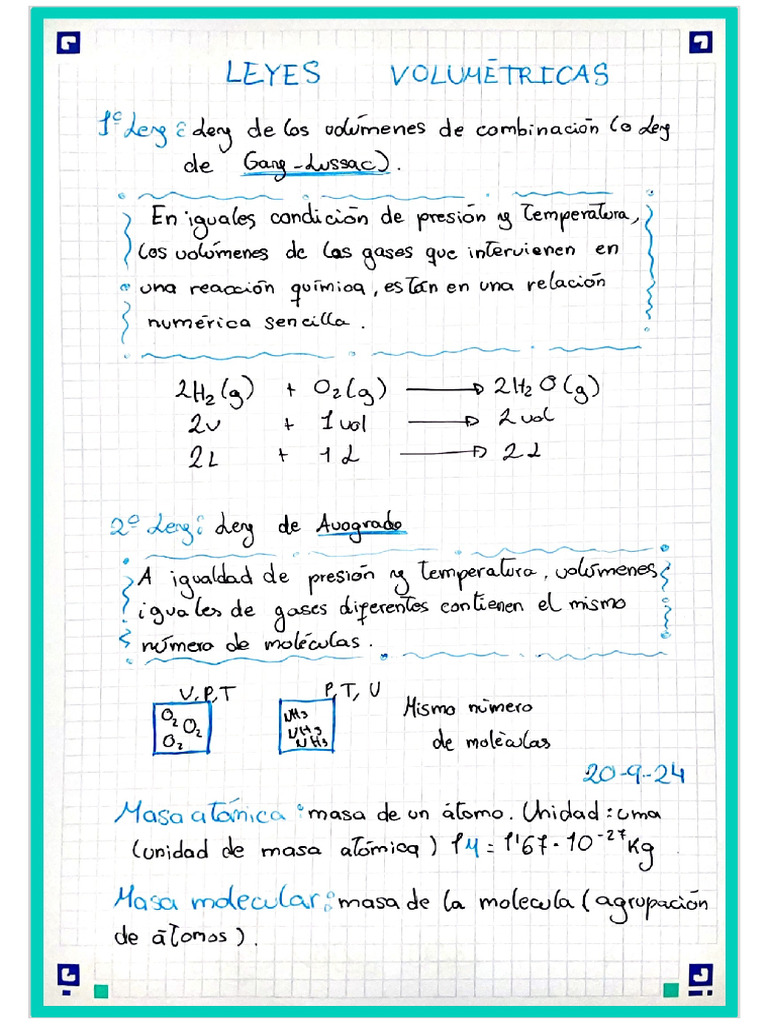 LEYES VOLUMÉTRICAS
1º Ley: Ley de los volúmenes de combinación (o Ley
de Gay-Lussac).
En iguales condición de presión y temperatura,
los volúmenes de los gases que intervienen en
una reacción química, están en una relación
numérica sencilla.
2H₂(g) + O₂(g) → 2H₂O(g)
2v + 1vol → 2vol
2L + 1L → 2L
2º Ley: Ley de Avogrado
A igualdad de presión y temperatura, volúmenes
iguales de gases diferentes contienen el mismo
número de moléculas.
V,P,T P,T,V
O₂ O₂ O₂ NH₃ NH₃ NH₃
Mismo número
de moléculas
20-9-24
Masa atómica: masa de un átomo. Unidad: uma
(unidad de masa atómica) 1u = 1'67·10⁻²⁷Kg
Masa molecular: masa de la molécula (agrupación
de átomos).